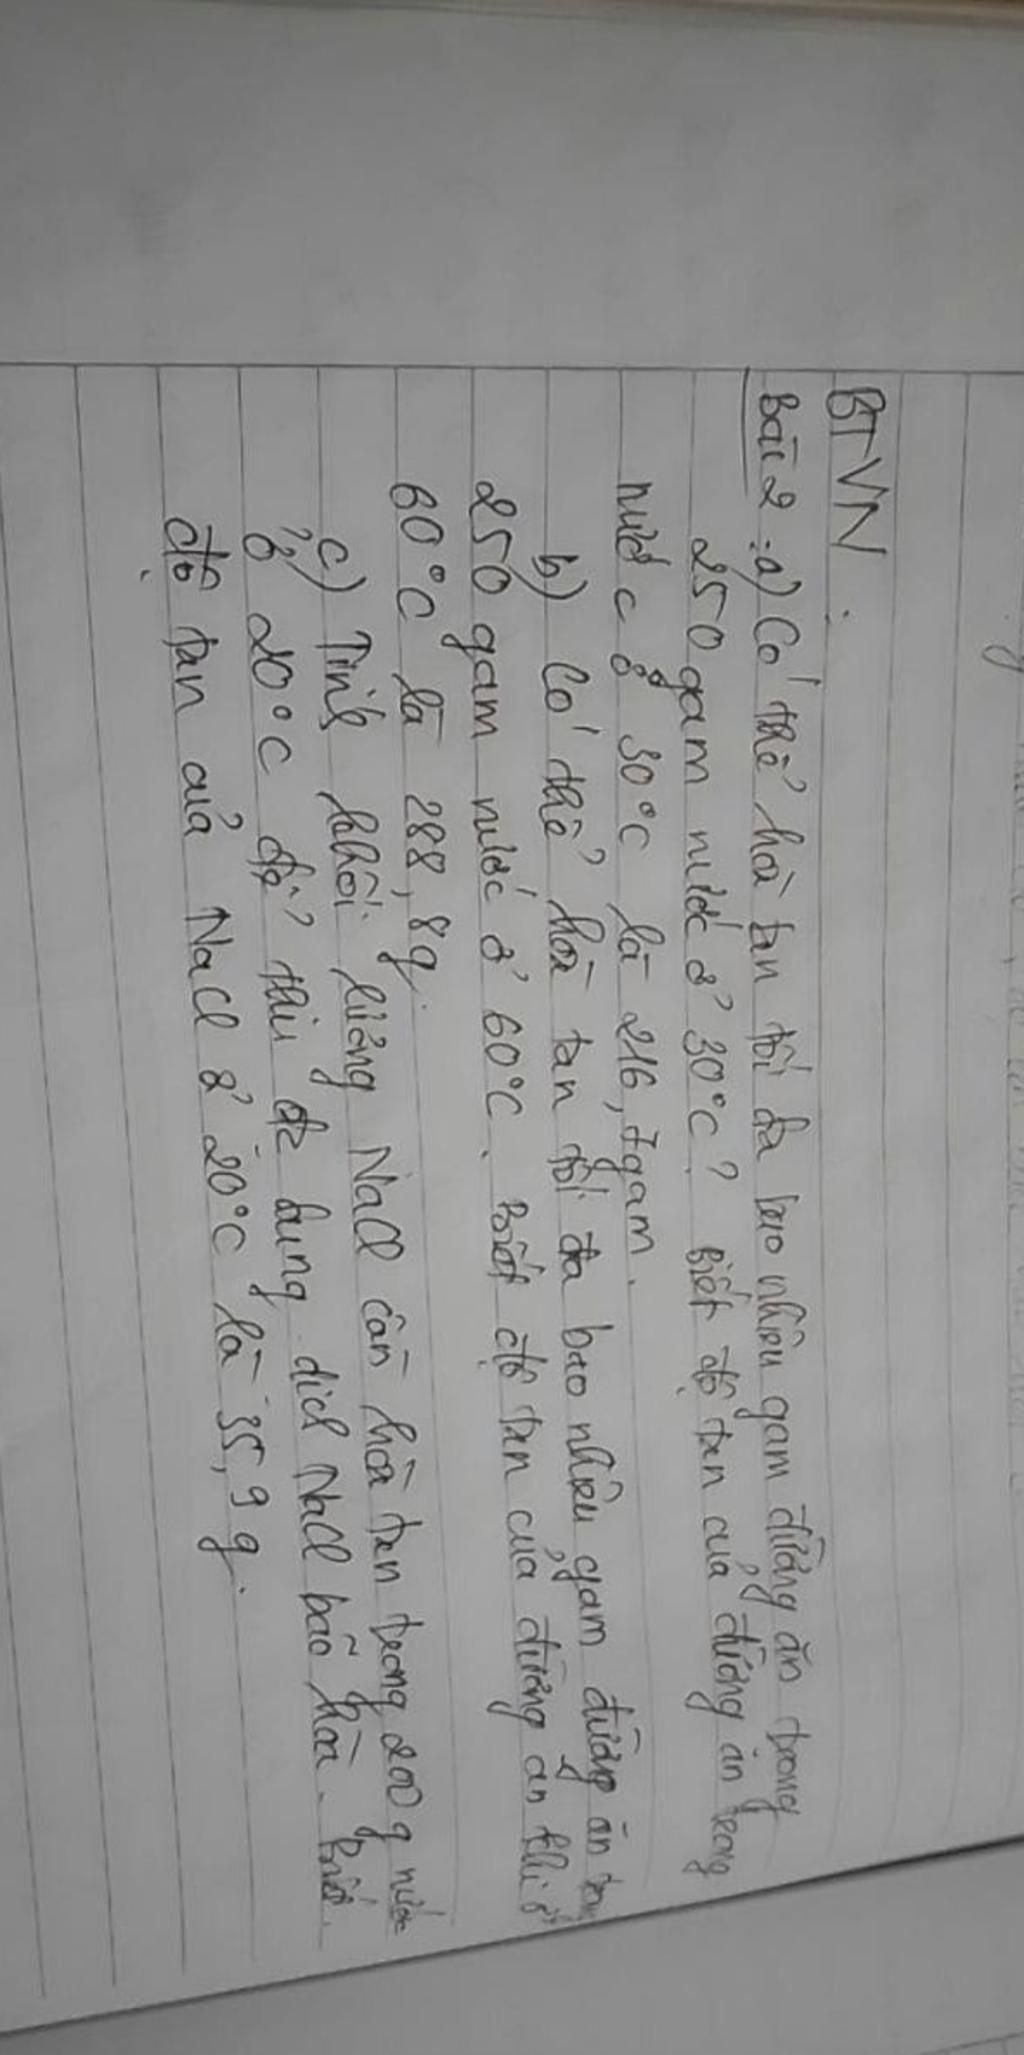 BTVN:
Bài 2: a) Có thể hoà tan tối đa bao nhiêu gam đường ăn trong
250 gam nước ở 30°C? Biết độ tan của đường ăn trong
nước ở 30°C là 216,7gam.
b) Có thể hoà tan tối đa bao nhiêu gam đường ăn
250 gam nước ở 60°C. Biết độ tan của đường ăn
60°C là 288,8g.
c) Tính khối lượng NaCl cần hoà tan trong 200 g nước
ở 20°C để thu đc dung dịch NaCl bão hoà. Biết
độ tan của NaCl ở 20°C là 35,9 g.